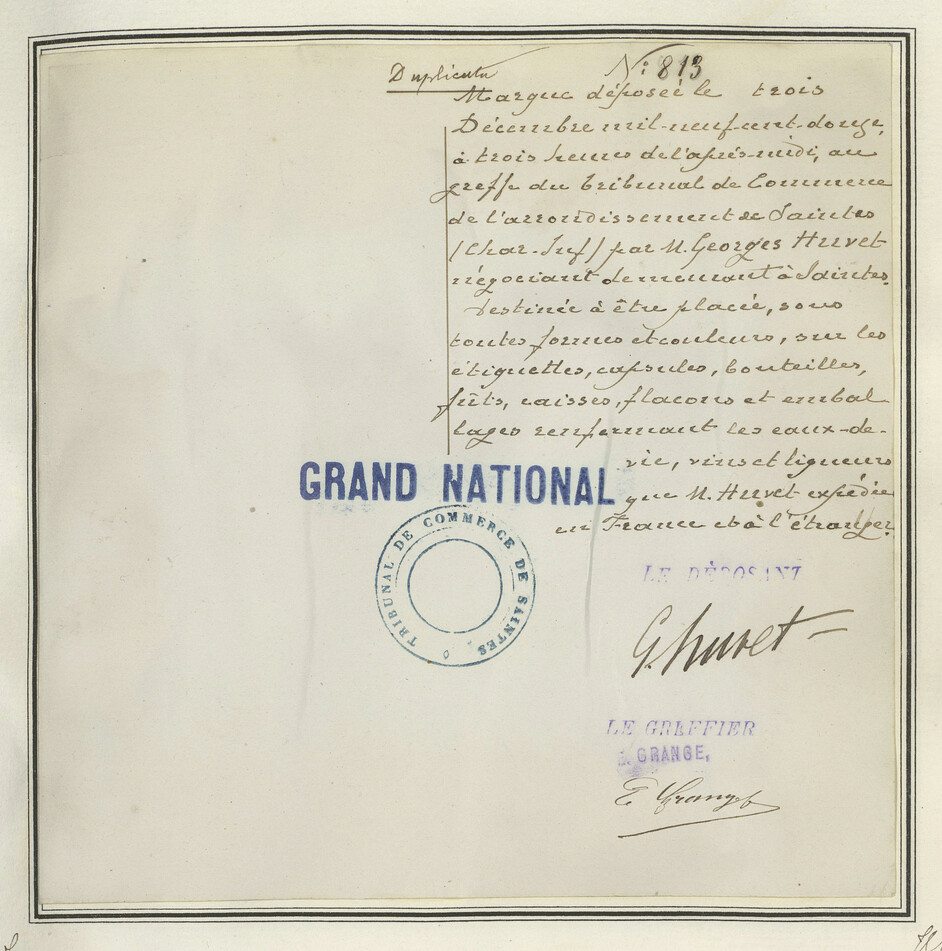 Duplicata
N° 813
Marque déposée le trois
Décembre mil-neuf-cent-douze,
à trois heures de l'après-midi, au
greffe du tribunal de Commerce
de l'arrondissement de Saintes
(Char-Inf) par M. Georges Huvet
négociant demeurant à Saintes.
Destinée à être placée, sous
toutes formes et couleurs, sur les
étiquettes, capsules, bouteilles,
fûts, caisses, flacons et embal
lages renfermant les eaux-de-
vie, vins et liqueurs
que M. Huvet expédie
en France et à l'étranger.
GRAND NATIONAL
TRIBUNAL DE COMMERCE DE SAINTES
LE DÉPOSANT
G. Huvet
LE GREFFIER
E. GRANGE,
E Grange